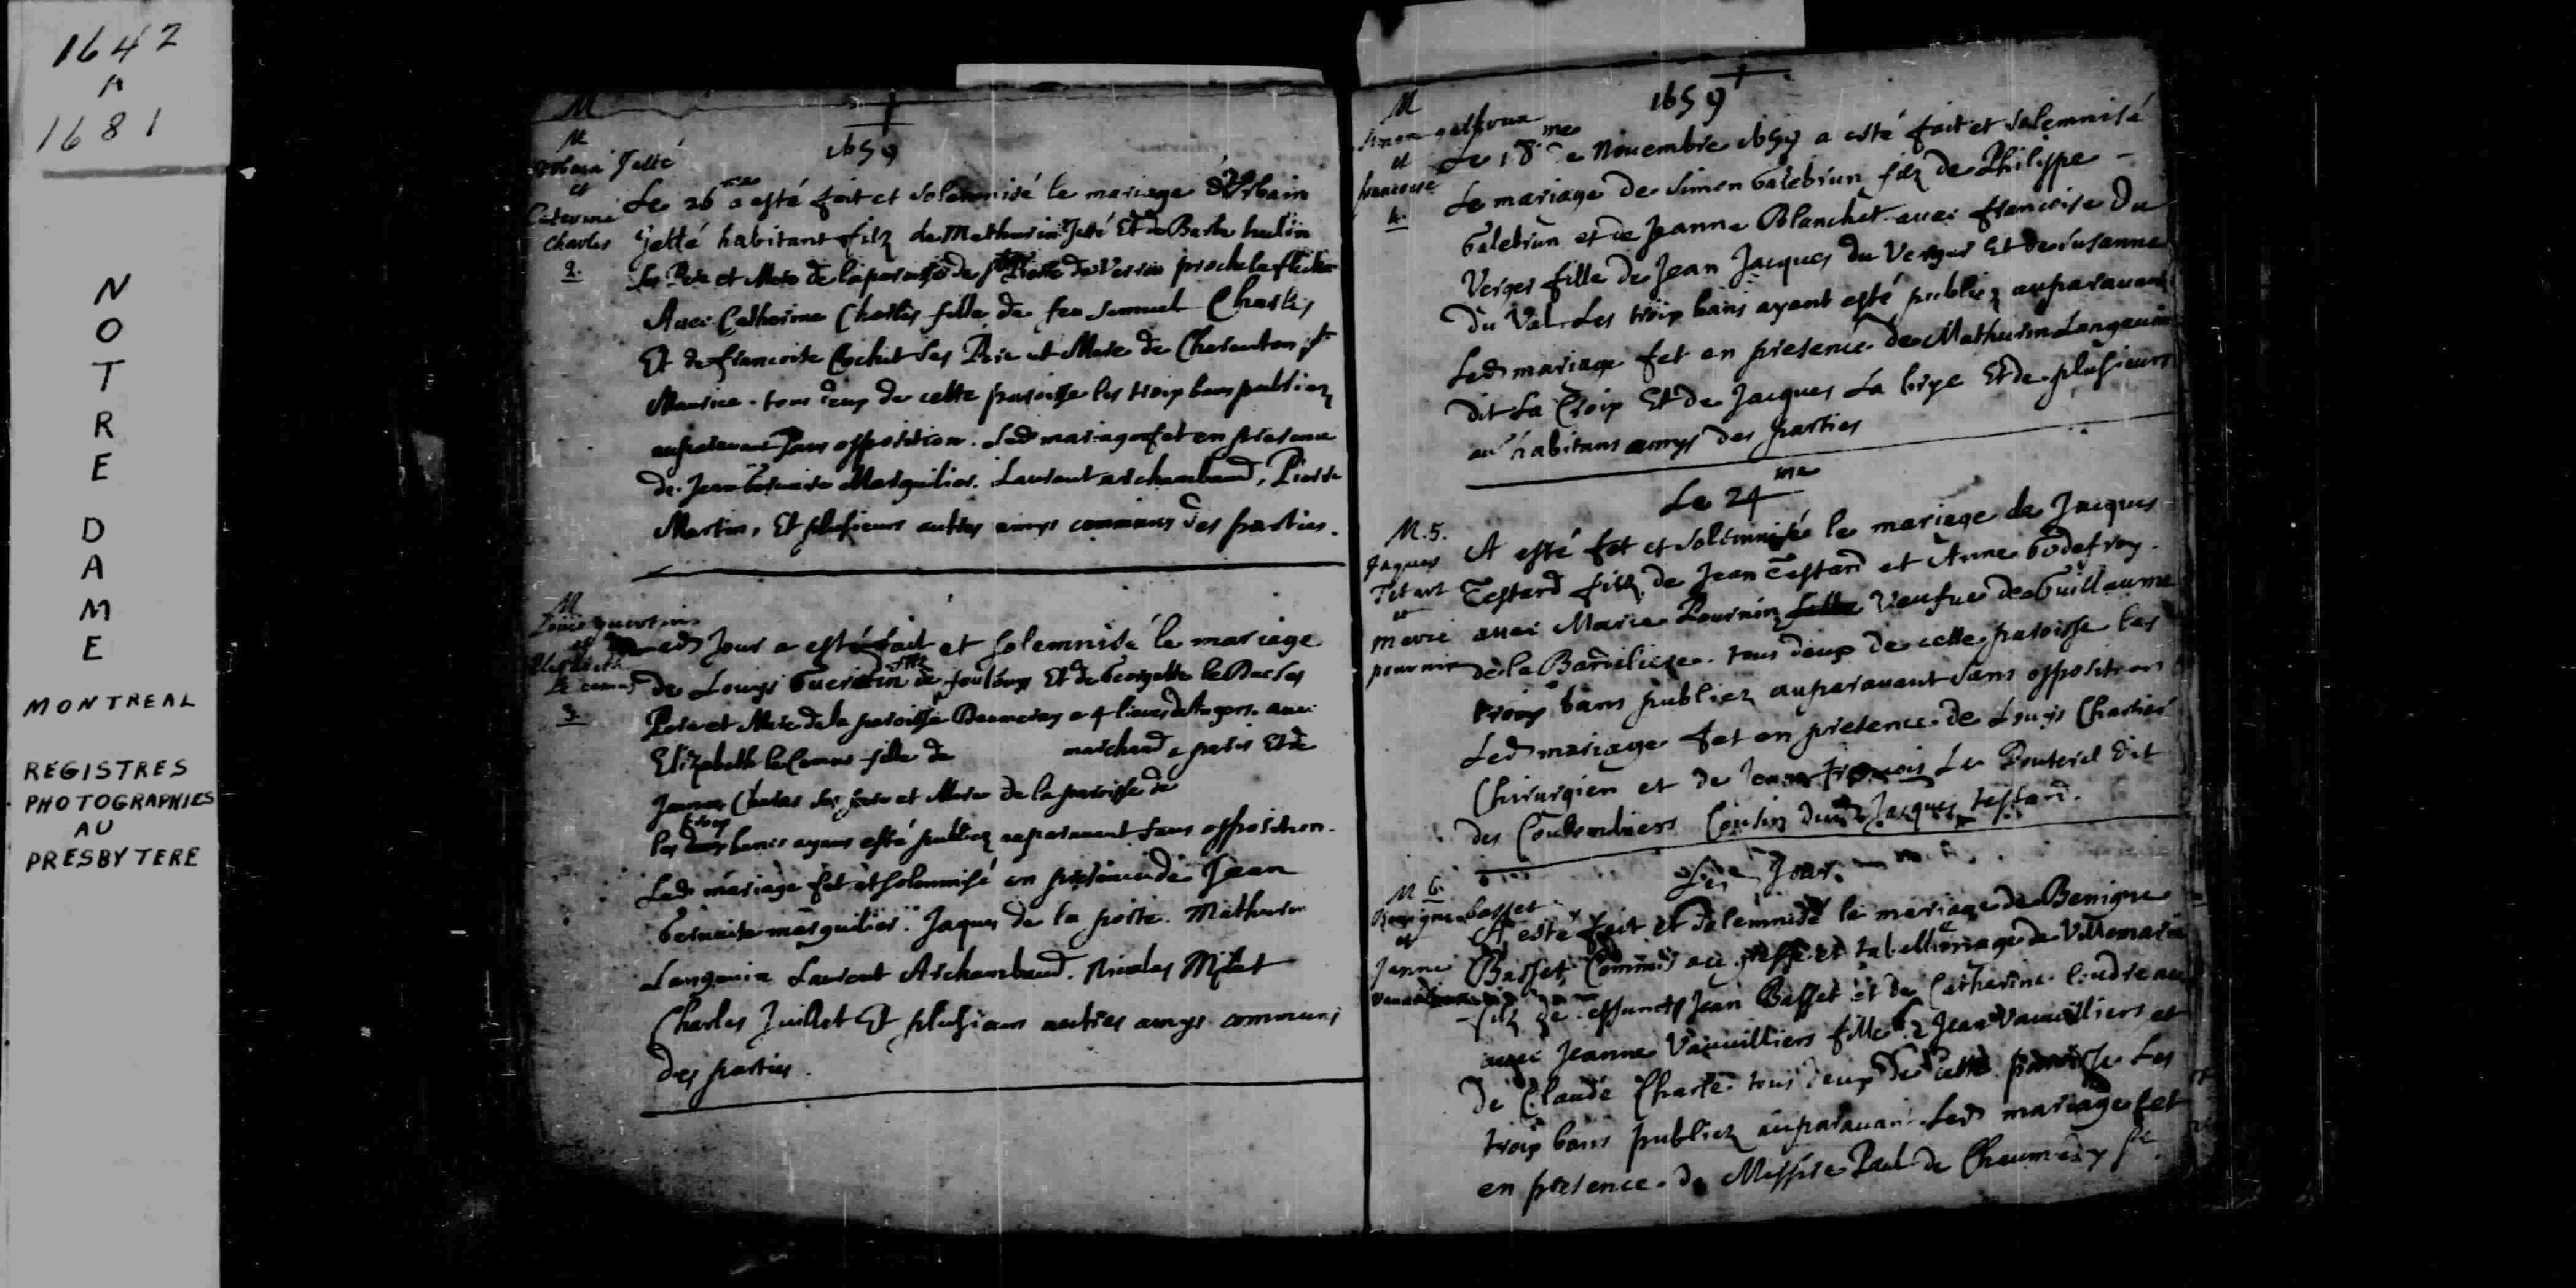 1642
A
1681
NOTRE
DAME
MONTREAL
REGISTRES
PHOTOGRAPHIES
AU
PRESBYTERE
M
1659
M
Jetté
et
Caterine
Charles
2.
Le 26me a esté fait et solemnisé le mariage d'Urbain
Jetté habitant filz de Mathurin Jetté Et de Barbe hulin
ses Pere et Mere de la paroisse de St Pierre de Verrin proche la fleche
Avec Catherine Charles fille de feu Samuel Charles
Et de francoise Cochet ses Pere et Mere de Charenton St
Maurice. tous deux de cette paroisse les trois bans publiez
auparavant sans opposition. Led mariage fet en presence
de Jean Gervaise Marguilier. Laurent archambaud, Pierre
Martin, Et plusieurs autres amys communs des parties.
M
Louis guertin
et
Elisabeth
le camus
3.
Led Jour a esté fait et solemnisé le mariage
de Louys Guertin filz de feu Louys Et de Georgette le Duc ses
Pere et Mere de la paroisse Daumeray a 4 lieues d'Angers. avec
Elizabeth le Camus fille de marchand a paris Et de
Jeanne Charas ses pere et Mere de la paroisse de
les trois bancs ayans esté publiez auparavant sans opposition.
Led mariage fet et solemnisé en presence de Jean
Gervaise marguilier. Jaques de la porte. Mathurin
Langevin Laurent Archambaud. Nicolas Milet
Charles Juillet Et plusieurs autres amys communs
des parties.
1659
M
Simon galbrun
et
francoise
4.
Le 18me de Novembre 1659 a esté fait et solemnisé
Le mariage de Simon Galebrun filz de Philippe
Galebrun et de Jeanne Blanchet avec francoise Du
Verger fille de Jean Jacques du Verger Et de Susanne
du Val. Les trois bans ayant esté publiez auparavant
Led mariage fet en presence de Mathurin Langevin
dit La Croix Et de Jacques La brye Et de plusieurs
au habitans amys des parties
Le 24me
M. 5.
Jaques
Tetart
et
marie
pournin
A esté fet et solemnisé le mariage de Jacques
Testard filz de Jean Testard et Anne Godefroy.
avec Marie Pournin fille Veufve de Guillaume
de la Bardilieze. tous deux de cette paroisse les
trois bans publiez auparavant sans opposition
Led mariage fet en presence de Louys Chartier
Chirurgien et de francois Le Bouterel dit
des Coulombiers Cousin dud Jacques testard.
Led Jour.
M 6.
Benigne basset
et
Janne
A esté fait et solemnisé le mariage de Benigne
Basset, Commis au greffe et tabellionage de Villemarie
filz de deffuncts Jean Basset et de Catherine Gudreau
avec Jeanne Vauvilliers fille de Jean Vauvilliers et
de Claude Charle tous deux de cette paroisse Les
trois bans publiez auparavant. Led mariage fet
en presence de Messire Paul de Chaumedy Sr.